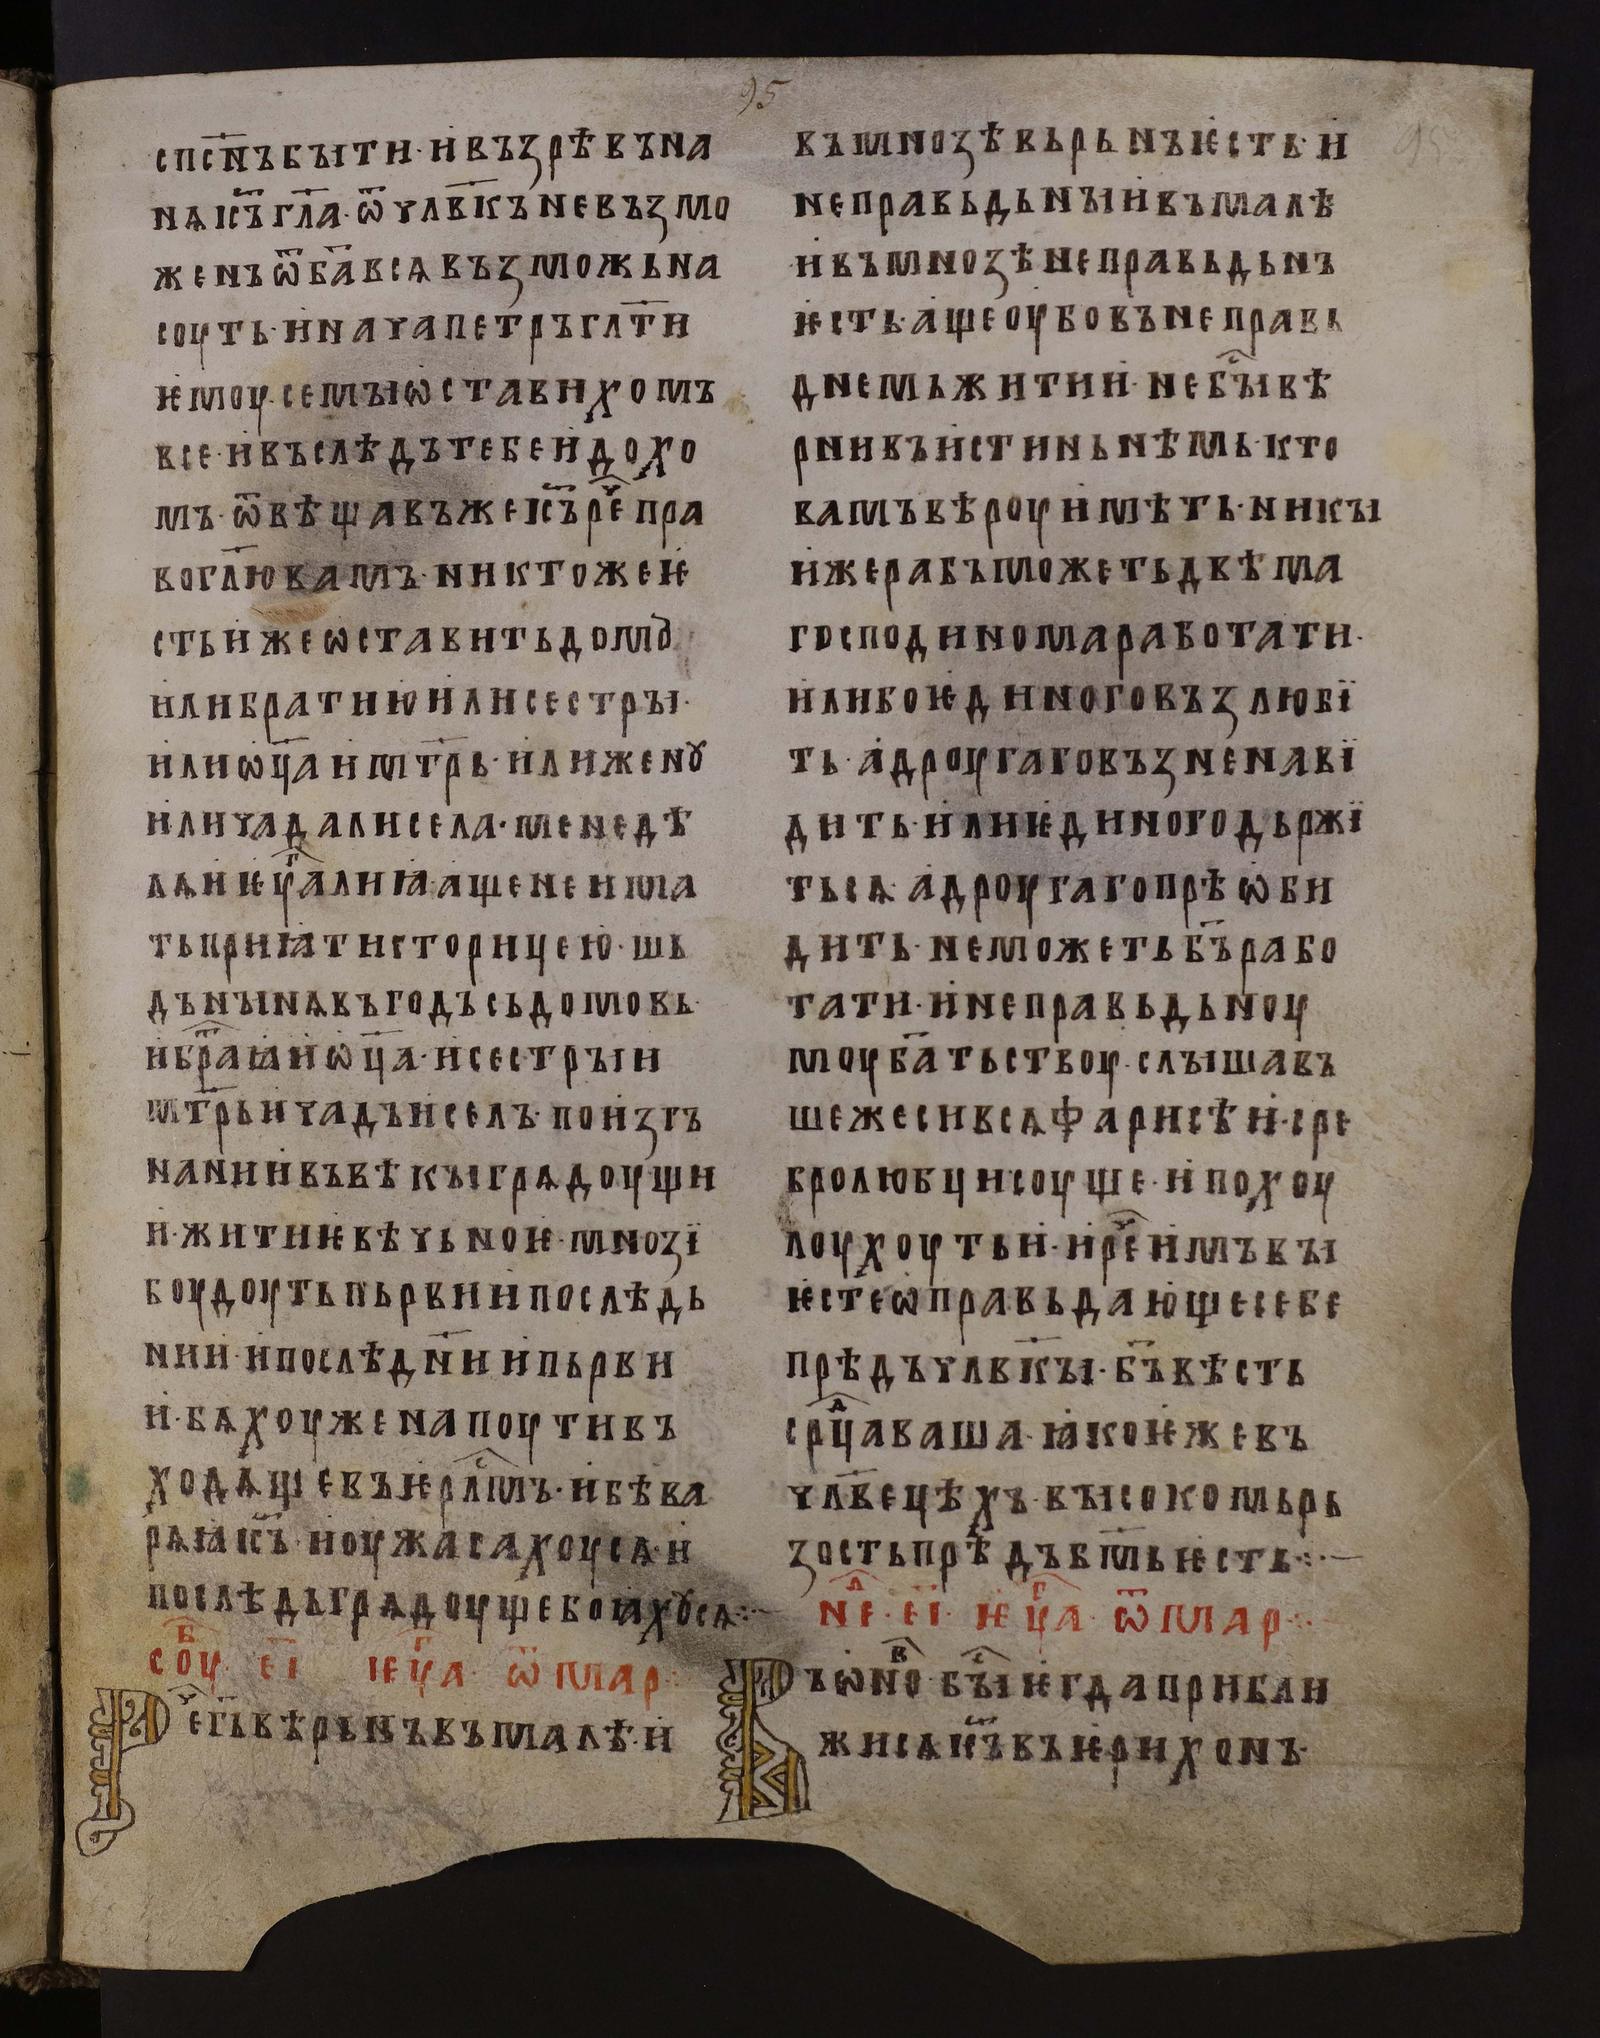 95
спсн҃ъбꙑти·ивъзрѣвъна
нѧіс҃ъгл҃а·ѿчлв҃къневъзмо
женъѿб҃авсѧвъзможьна
соуть·иначапетръгл҃ти
ѥмоу·семꙑѡставихомъ
все·ивъслѣдътебеидохо
мъ·ѿвѣщавъжеіс҃ърⷱ҇епра
вогл҃ювамъ·никтожеѥ
стьижеѡставитьдомꙋ
илибратиюилисестрꙑ·
илиѡц҃аимт҃рь·илиженꙋ
иличадалисела·менедѣ
лѧиѥуⷢ҇алиꙗащенеима
тьприꙗтисторицею·шь
дънꙑнѧвъгодъсьдомовь·
ибраⷮ҇ꙗиѡц҃а·исестрꙑи
мт҃рьичадъиселъ·поизгъ
нанииивъвѣкꙑгрѧдоущи
и·житиѥвѣчьноѥ·мнозї
боудоутьпьрвиипослѣдь
нии·ипослѣдн҃иипьрви
и·бѧхоуженапоутивъ
ходѧщевъѥрлⷭ҇мъ·ибѣва
рѧꙗіс҃ъ·иоужасахоусѧ·и
послѣдьгрѧдоущебоꙗхꙋсѧ
соуⷠ҇ еі ѥуⷢ҇а ѿмар
рⷱ҇егь҃вѣрьнъвъмалѣ·и
въмнозѣвьрьнъѥсть·и
неправьдьнꙑивъмалѣ
ивъмнозѣнеправьдьнъ
ѥсть·ащеоубовънеправь
днемьжитии·небꙑⷭ҇вѣ
рнивъистиньнѣмь·кто
вамъвѣроуиметь·никꙑ
ижерабъможетьдвѣма
господиномаработати·
илибоѥдиноговъзлюбї
ть·адроугаговъзненавї
дить·илиѥдиногодьржї
тьсѧ·адроугагопрѣѡби
дить·неможетьб҃ърабо
тати·инеправьдьноу
моуб҃атьствоу·слꙑшавъ
шежесивсѧфарисѣи·сре
бролюбцисоуще·ипохоу
лоухоутьи·ирⷱ҇еимъвꙑ
ѥстеѡправьдающесебе
прѣдъчлв҃кꙑ·б҃ъвѣсть
срⷣ҇цаваша·ꙗкоѥжевъ
члв҃ецѣхъ·вꙑсокомьрь
зостьпрѣдъбм҃ьѥсть
неⷧ҇·еі·ѥуⷢ҇а·ѿмар
въѡноⷡ҇·бꙑⷭ҇ѥгдаприбли
жисѧіс҃ъвъѥрихонъ·